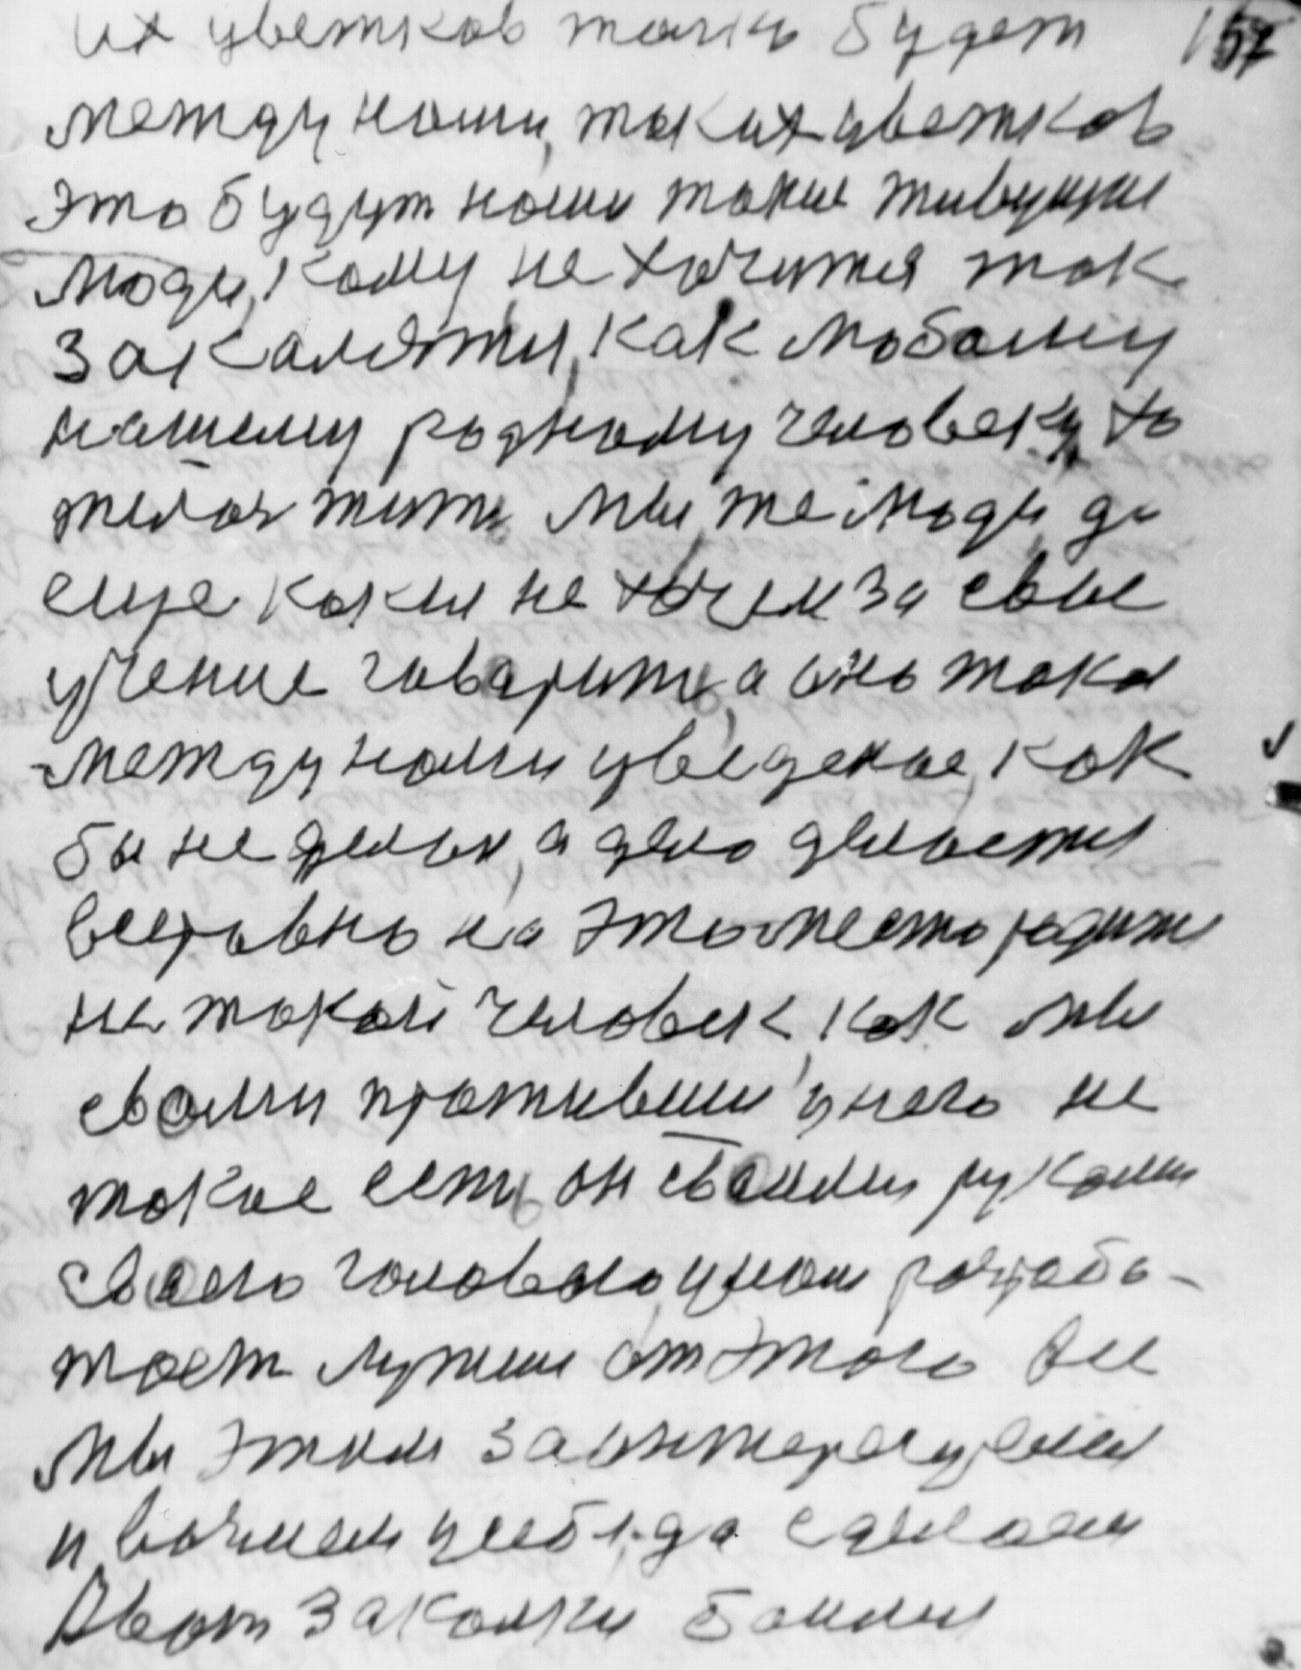 их цветков только будет 157
между нами, таких цветков
это будут наши такие живущие
люди, кому не хочится так
закалятся, как любому
нашему родному человеку, хо
телось жить. Мы же люди, да
еще какие не хочем за свое
учение говорить, а оно така
между нами уведеное, как
бы не делал, а дело делается
всеравно на это место родится
не такой человек, как мы
своими прожившии у него не
такое есть, он своими руками
своего головного, умом разрабо-
тает лучшии от этого Все
мы этим заинтересуемся
и вочнем у себя, да сделаем
А вот закалки боимся